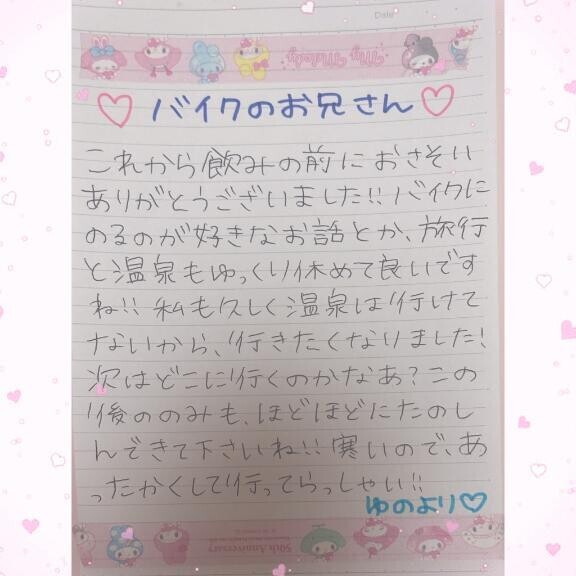 Date
My Melody
♡バイクのお兄さん♡
これから飲みの前におさそい
ありがとうございました!! バイクに
のるのが好きなお話とか、旅行
と温泉もゆっくり休めて良いです
ね!! 私も久しく温泉は行けて
ないから、行きたくなりました!
次はどこに行くのかなあ?この
後ののみも、ほどほどにたのし
んできて下さいね!! 寒いので、あ
ったかくして行ってらっしゃい!!
ゆのより♡
50th Anniversary